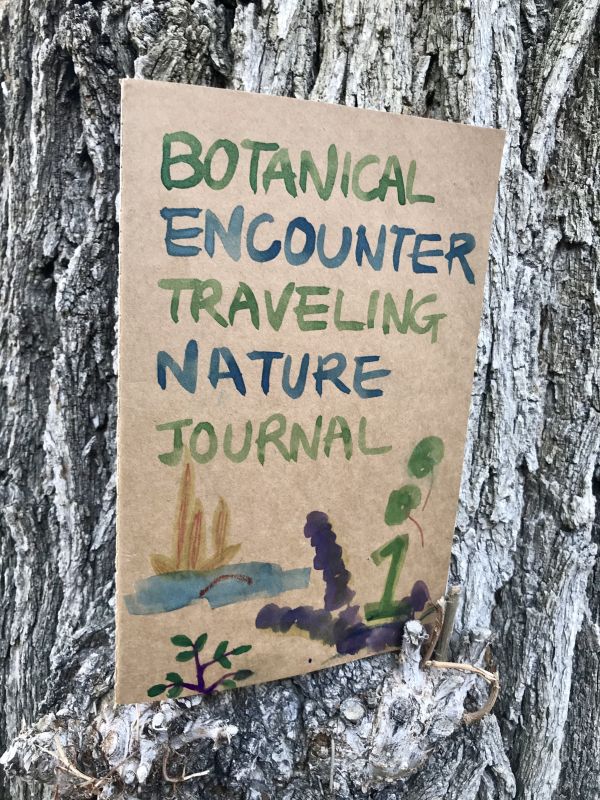 BOTANICAL
ENCOUNTER
TRAVELING
NATURE
JOURNAL
1